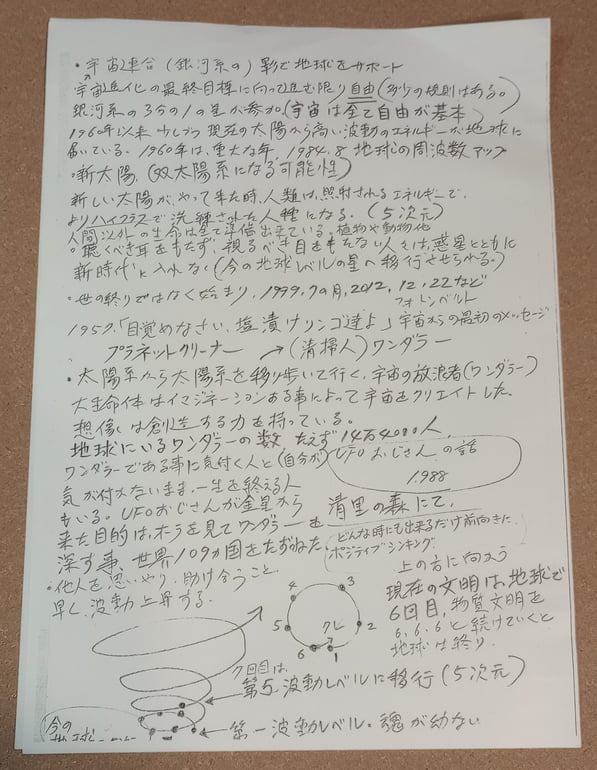 ・宇宙連合(銀河系の)影で地球をサポート
宇宙進化の最終目標に向って進む限り自由(多少の規則はある。)
銀河系の3分の1の星が参加。(宇宙は全て自由が基本)
1960年以来少しづつ現在の太陽から高い波動のエネルギーが地球に
届いている。1960年は、重大な年、1984.8 地球の周波数アップ
・新太陽、(双太陽系になる可能性)
新しい太陽が、やって来た時、人類は、照射されるエネルギーで、
よりハイクラスで洗練された人種になる。(5次元)
人間以外の生命は全て準備出来ている。植物や動物他
。聴くべき耳をもたず、視るべき目をもたない人々は、惑星とともに
新時代に入れなく(今の地球レベルの星へ移行させられる。)
・世の終りではなく始まり、1999,7の月,2012,12,22など
フォトンベルト
1957.「目覚めなさい、塩漬けリンゴ達よ」宇宙からの最初のメッセージ
プラネットクリーナー →(清掃人)ワンダラー
・太陽系から太陽系を移り歩いて行く、宇宙の放浪者(ワンダラー)
大生命体はイマジネーションある事によって宇宙をクリエイトした。
想像は創生する力を持っている。
地球にいるワンダラーの数、たえず14万4000人、
ワンダラーである事に気付く人と(自分が)
気が付かないまま、一生を終える人
もいる。UFOおじさんが金星から
来た目的は、オーラを見てワンダラーを
深す事、世界109カ国をたずねた。
UFOおじさんの話
1988
清里の森にて、
どんな時にも出来るだけ前向きに、
ポジティブシンキング
・他人を思いやり、助け合うこと、
早く、波動上昇する。
上の方に向かう
現在の文明は、地球で
6回目、物質文明を
6,6,6と続けていくと
地球は終り、
4 3
5 2
6 1
7回目は、
第5波動レベルに移行(5次元)
第一波動レベル。魂が幼ない
今の